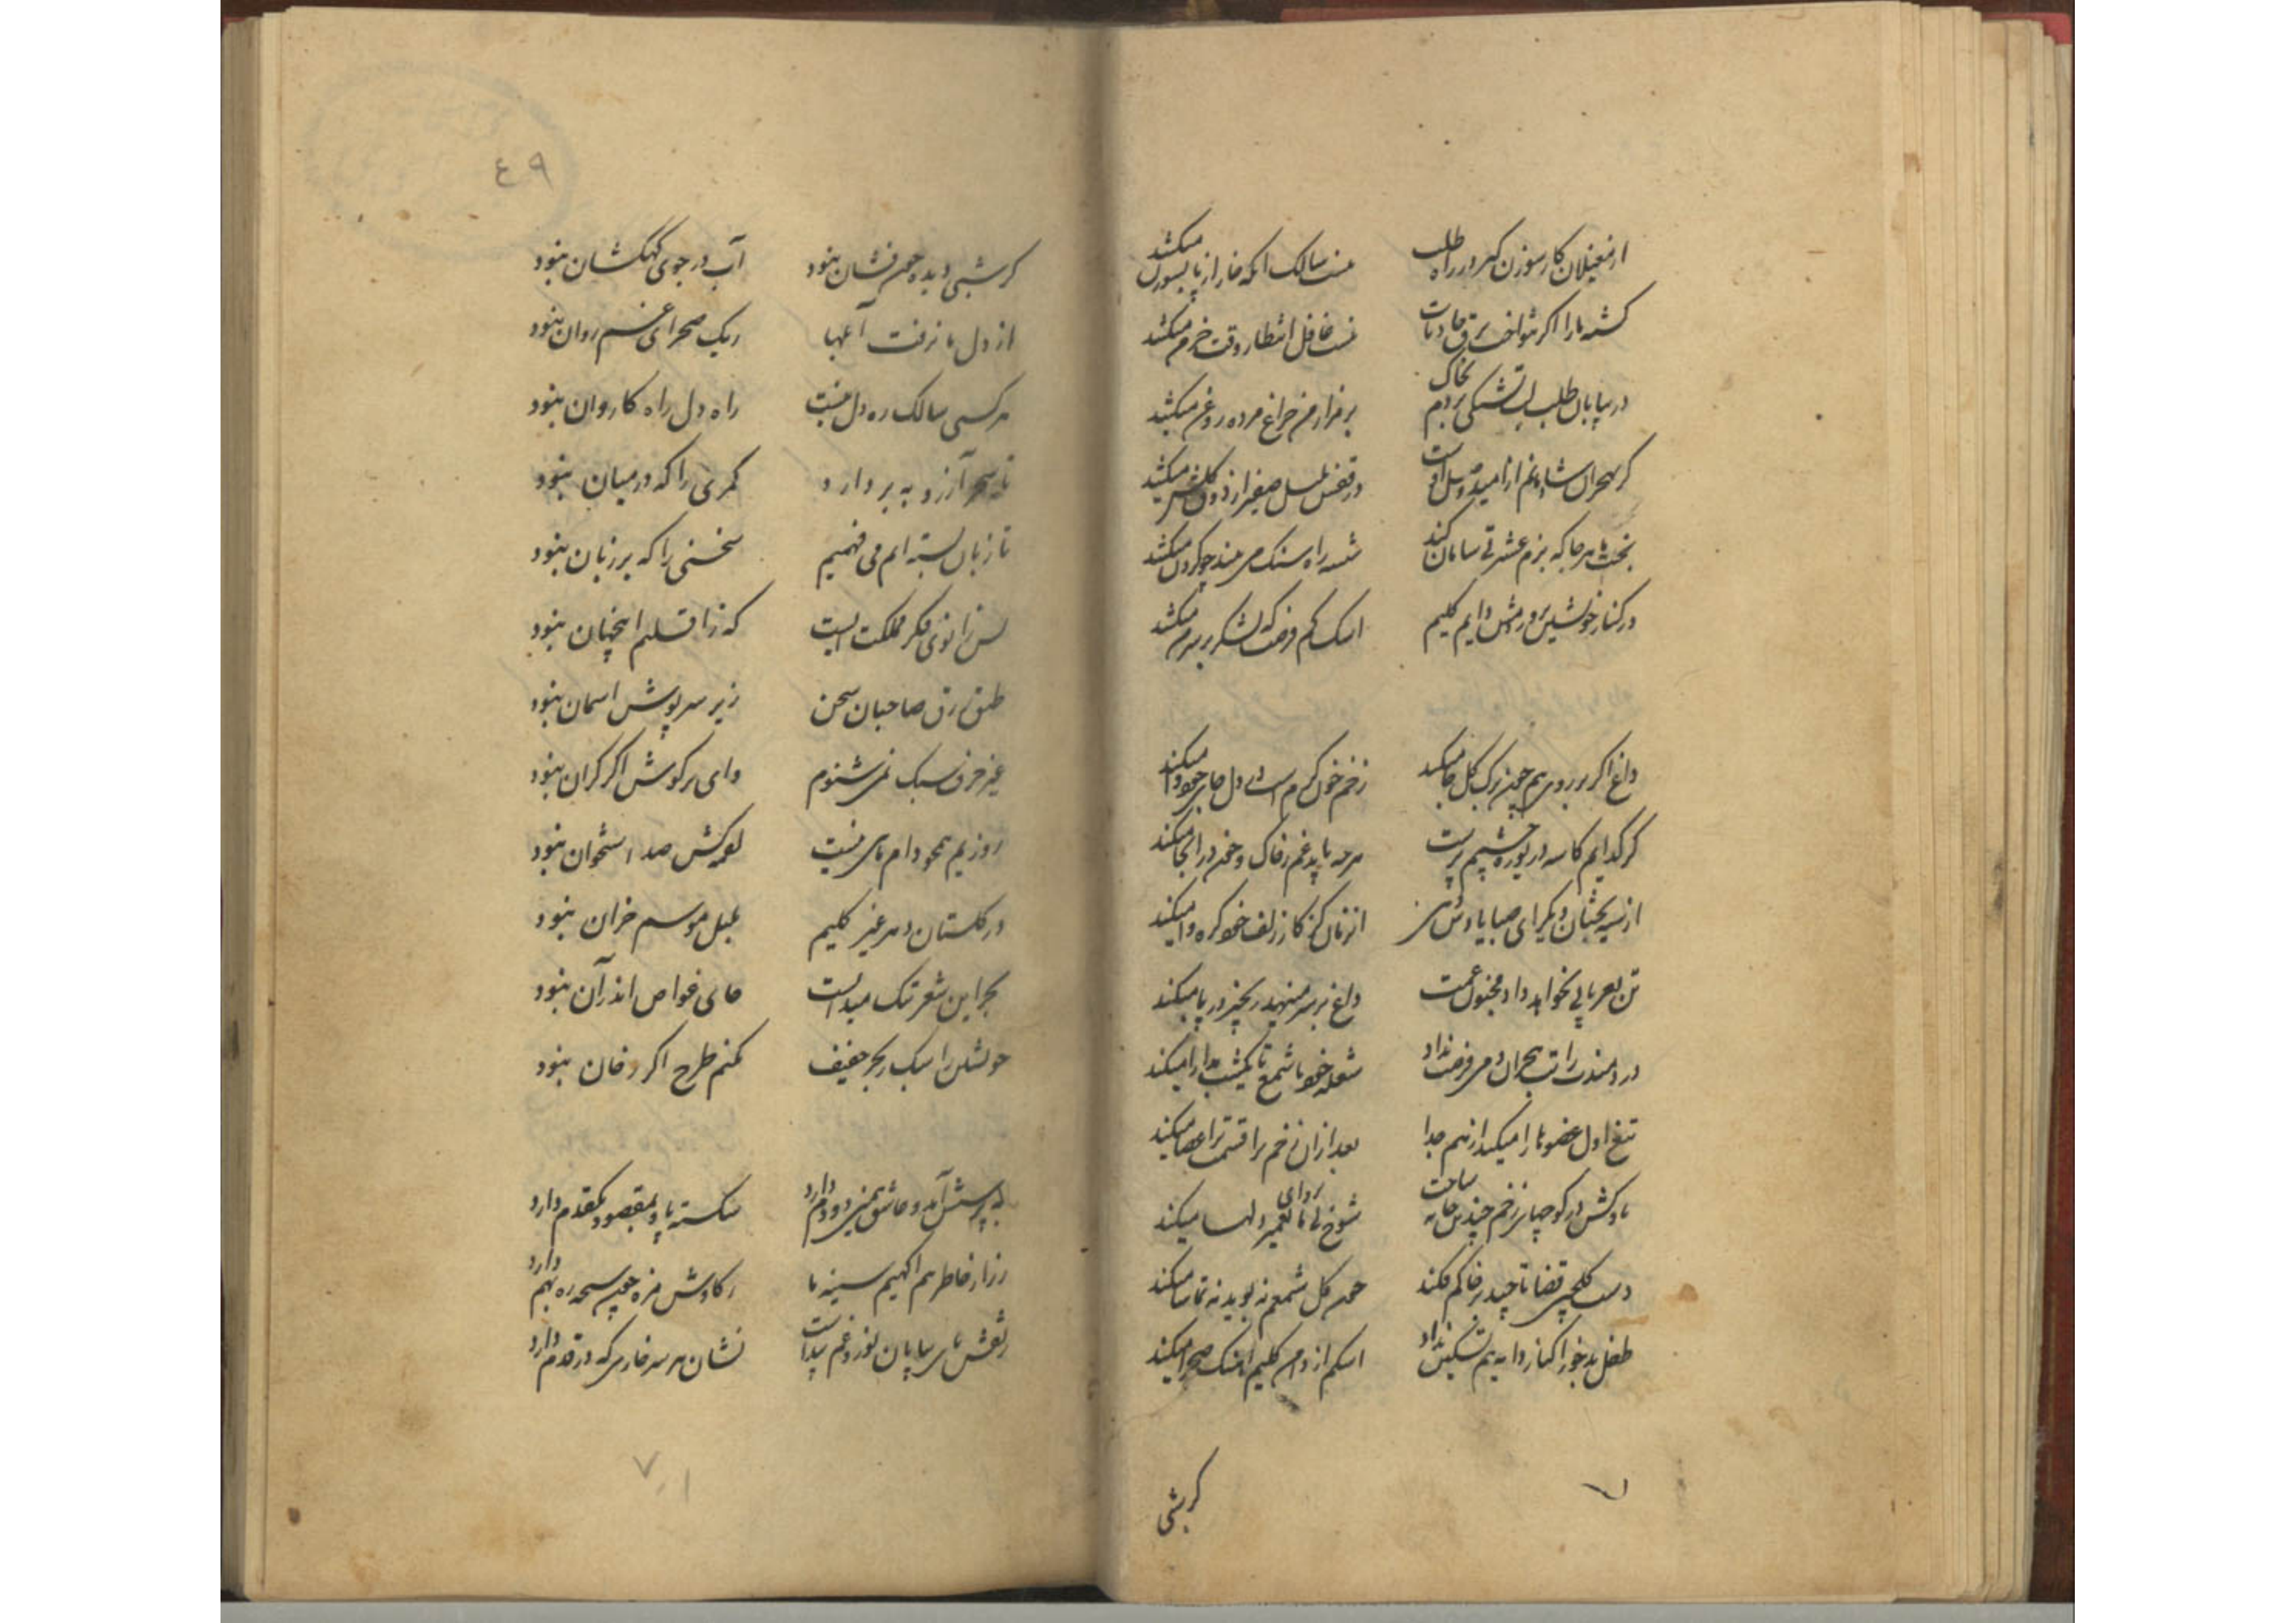 از مغیلان کار سوزن کیر در راه طلب
نیست سالک آنکه خار از پا بسوزن میکشد
کشته ما را اگر نتواخت برق حادثات
نیست غافل انتظار وقت خرمن میکشد
در بیابان طلب لب تشنکی بردم بخاک
بر مزار من چراغ مرده روغن میکشد
در قفس بلبل صفیر از ذوق کلشن میکشد
بخت ما هر جا که بزم عشرتی سامان کند
شیشه را سنک می بندد چو کردن میکشد
در کنار خویش پرورش دایم کلیم
اشک کم فرصت که لشکر بر سر من میکشد
داغ اگر بر روی هم چون برک کل جا میکند
زخم خون کرم است در دل جای خود وا میکند
کر کدایم کاسه دریوزه چشم پرست
هر چه باید غم ز خاک و خون در آنجا میکند
از سیه بختان دیکر ای صبا یادش دهی
از زمان کز کار زلف خود کره وا میکند
تن بعریانی نخواهد داد مجنون غمت
داغ بر سر مینهد زنجیر در پا میکند
دردمندت را تب هجران دمی فرصت نداد
شعله خود با شمع تا یکشب مدارا میکند
تیغ اول عضوها را میکند از هم جدا
بعد از آن زخم ترا قسمت بر اعضا میکند
ناوکش در کوچهای زخم چندین خانه ساخت
شوخ بی پروای ما تعمیر دلها میکند
دست کلچین قضا تا چید بر خاکم فکند
چون کل شمعم نه بوید نه تماشا میکند
طفل بدخو را کنار دایه هم تسکین نداد
اشکم از دامن کلیم آهنک صحرا میکند
کر شبی
٤٩
کر شبی دیده خون فشان نبود
آب در جوی کهکشان نبود
از دل ما نرفت آهها
ریک صحرای غم روان نبود
هر کسی سالک ره دل نیست
راه دل راه کاروان نبود
تا سحر آرزو به بر دارد
کمری را که در میان نبود
تا زبان بسته ایم می فهمیم
سخنی را که بر زبان نبود
بس زانوی فکر مملکت ایست
که ز اقلیم این جهان نبود
طبق رزق صاحبان سخن
زیر سرپوش اسمان نبود
غیر حرف سبک نمی شنوم
وای بر کوش اگر کران نبود
روزیم همچو دام ماهی نیست
لقمه کش صد استخوان نبود
در کلستان دهر غیر کلیم
بلبل موسم خزان نبود
بحر این شعر تنک میدانست
جای غواص اندر آن نبود
خویشتن را سبک ز بحر خفیف
نکنم طرح اگر روان نبود
به پرسش آمد و عاشق همین دو دم دارد
شکسته پا و بمقصود یکقدم دارد
ز کاوش مژه چون سبحه ره بهم دارد
ز نقش پای بیابان نورد غم پیداست
نشان هر سر خاری که در قدم دارد